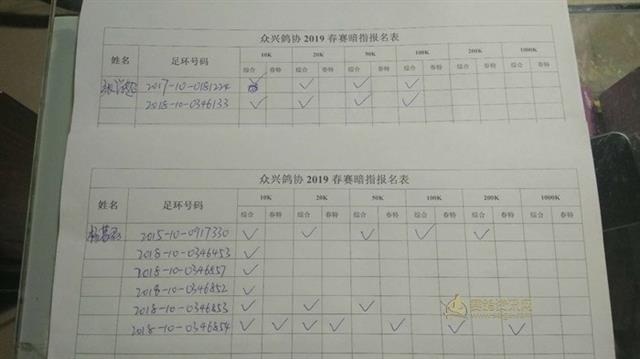 众兴鸽协 2019 春赛暗指报名表
姓名 足环号码 10K 20K 50K 100K 200K 1000K
综合 春特 综合 春特 综合 春特 综合 春特 综合 春特 综合 春特
2017-10-0181224 ✓ ✓ ✓
2018-10-0346133 ✓ ✓ ✓ ✓
众兴鸽协 2019 春赛暗指报名表
姓名 足环号码 10K 20K 50K 100K 200K 1000K
综合 春特 综合 春特 综合 春特 综合 春特 综合 春特 综合 春特
2015-10-0917330 ✓ ✓ ✓ ✓ ✓
2018-10-0346453 ✓
2018-10-0346857 ✓
2018-10-0346852 ✓
2018-10-0346853 ✓ ✓ ✓
2018-10-0346854 ✓ ✓ ✓ ✓ ✓ ✓ ✓